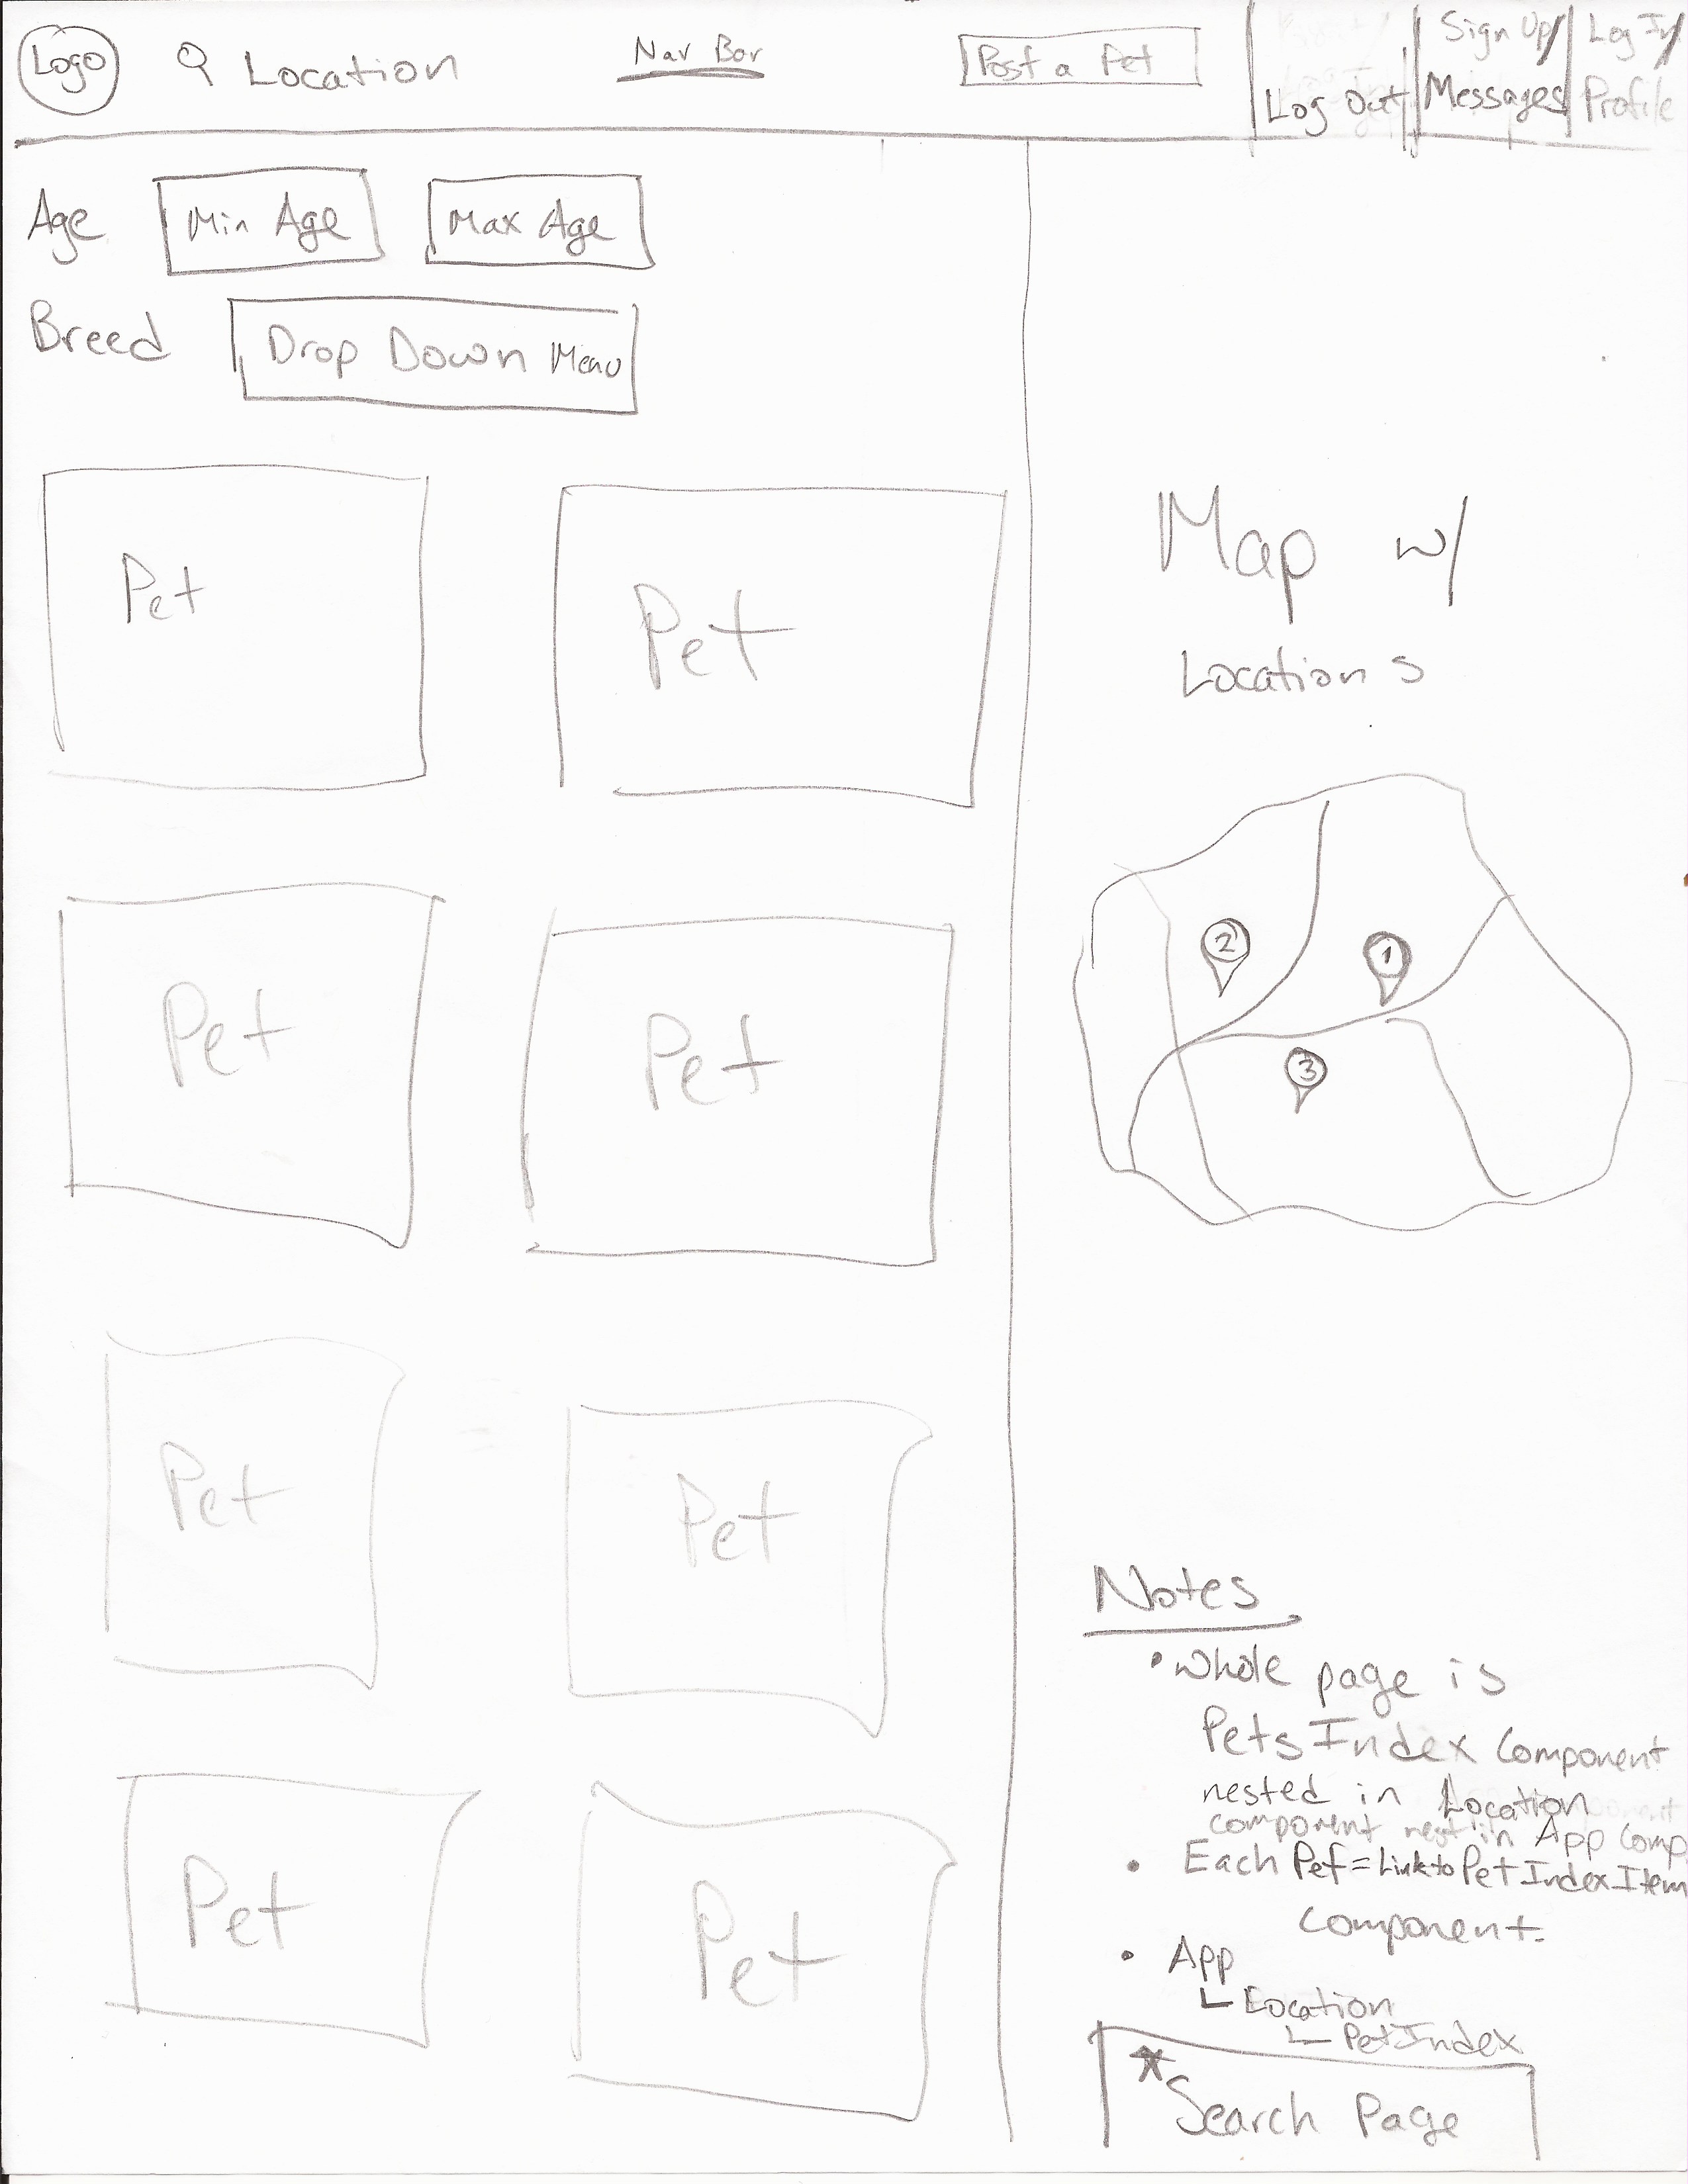 Logo Location Nav Bar Post a Pet Sign Up/ Log In/
Log Out Messages Profile
Age Min Age Max Age
Breed Drop Down Menu
Pet Pet
Map w/
Locations
2 1
3
Pet Pet
Pet Pet
Notes
• Whole page is
Pets Index Component
nested in Location
component nest in App Comp
• Each Pet = Link to Pet Index Item
Component.
• App
Location
Pet Index
Pet Pet
* Search Page